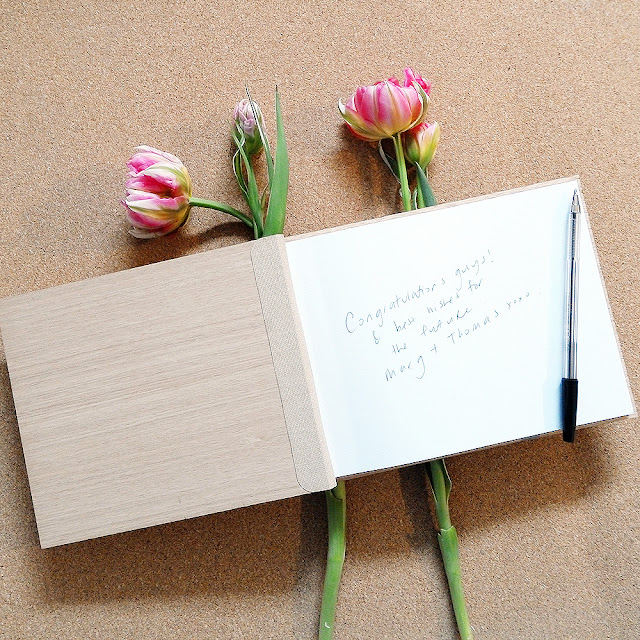 Congratulations guys!
& best wishes for
the future
Marg + Thomas xoxo